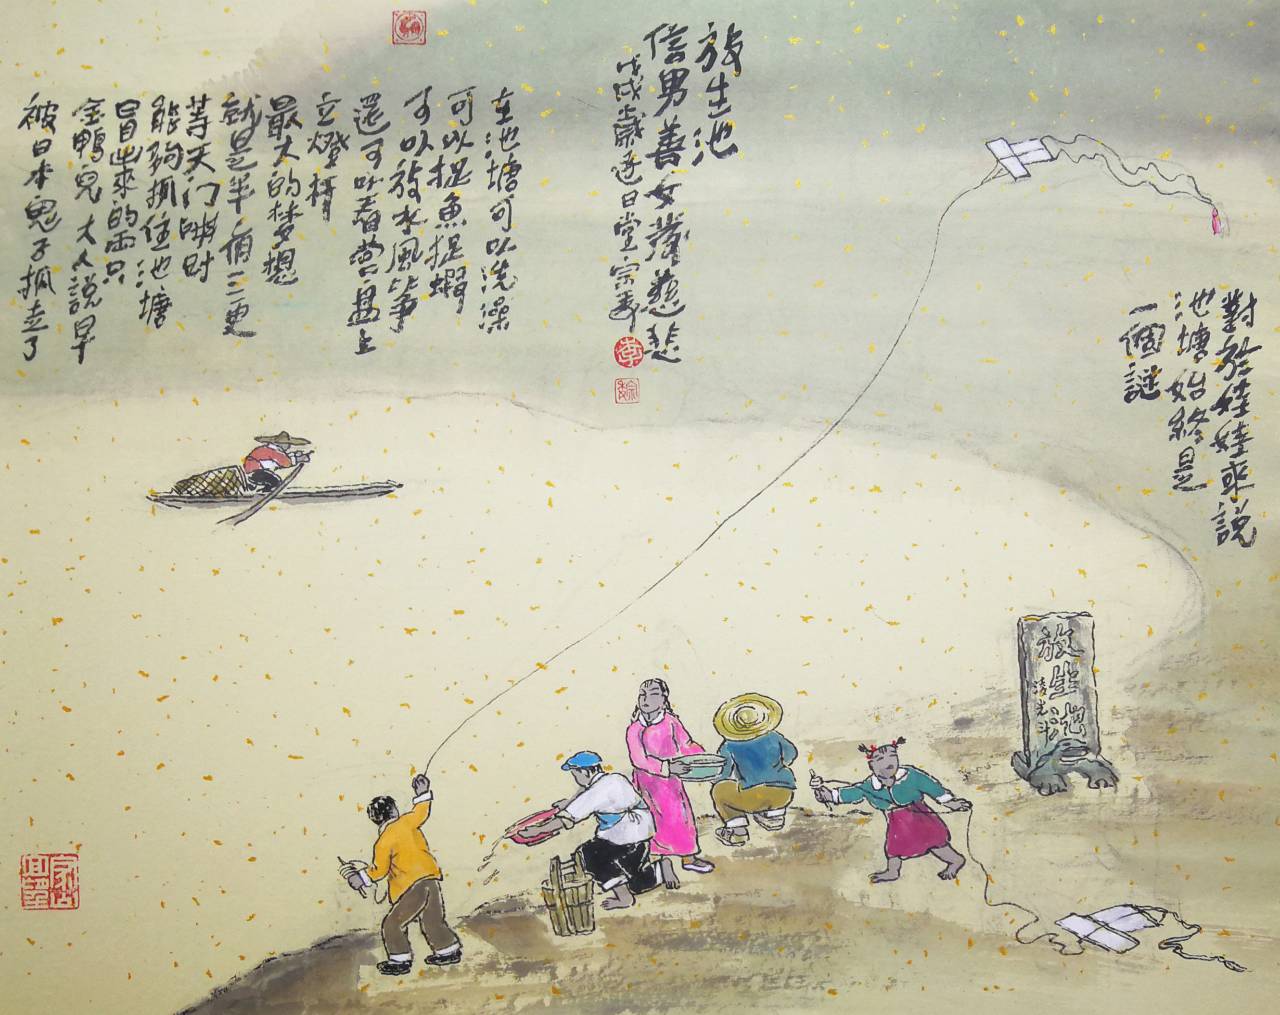 對於娃娃來說
池塘始終是
一個謎
放生池
信男善女發慈悲
戊戌歲日堂宗
在池塘可以洗澡
可以捉魚捉蝦
可以放水風箏
還可以看盤上
立燈
最大的夢想
就是半夜三更
等天门開时
能夠抓住池塘
冒出來的兩只
金鴨兒大人說早
被日本鬼子抓走了
放生池
凌光斗